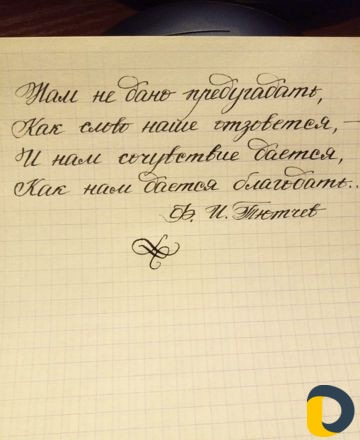 Нам не дано предугадать,
Как слово наше отзовется, –
И нам сочувствие дается,
Как нам дается благодать..
Ф. И. Тютчев